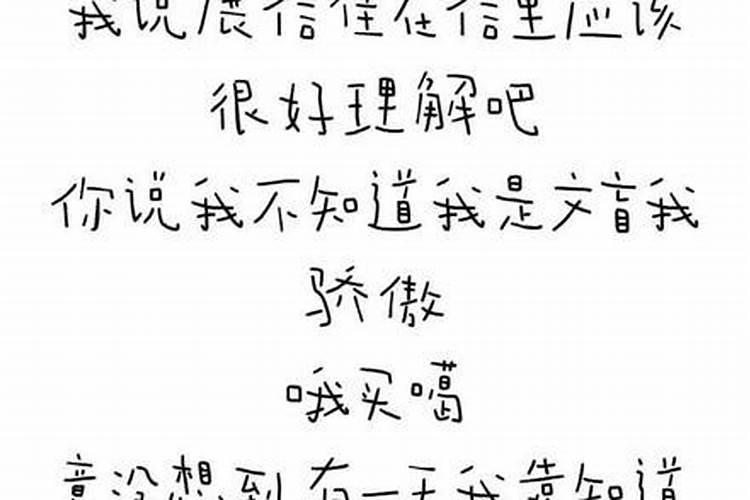 我说展信佳在信里应该
很好理解吧
你说我不知道我是文盲我
骄傲
哦买噶
竟没想到有一天我靠知道